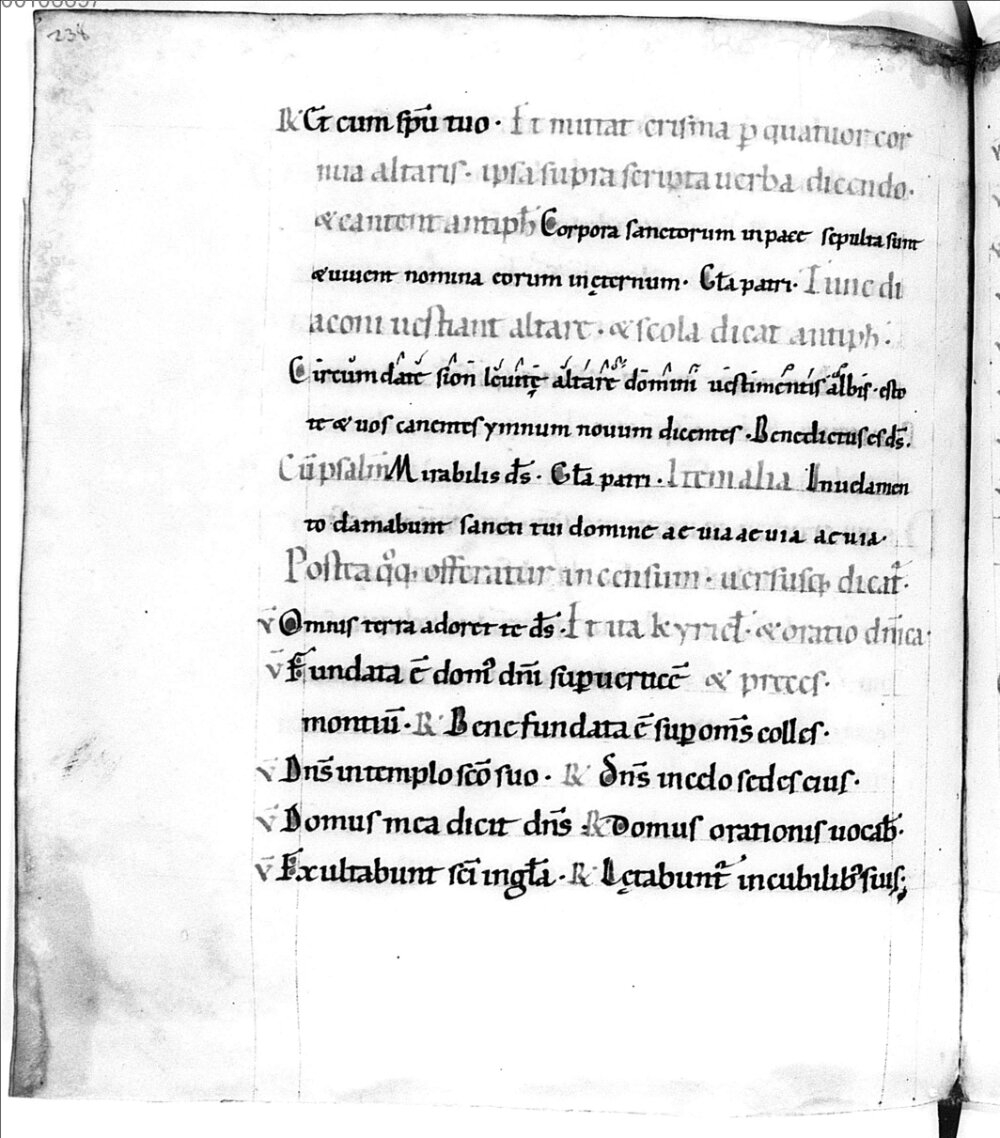 00108897
238
R Et cum spū tuo · Et mittat crisma ꝑ quatuor cor
nua altaris · ipsa supra scripta uerba dicendo ·
& cantent antiph̄ Corpora sanctorum in pace sepulta sunt
& uiuent nomina eorum in ęternum · Gl̄a patri · Tunc di
aconi uestiant altare · & scola dicat antiph̄ ·
Circūmdate sion leuitę altare domini uestimentis albis · esto
te & uos canentes ymnum nouum dicentes · Benedictus es ds̄ ·
Cū psalm̄ Mirabilis ds̄ · Gl̄a patri · Item alia In uelamen
to clamabunt sancti tui domine aeuia aeuia aeuia ·
Postea offeratur incensum · uersusq; dicat̄ ·
v̄ Omnis terra adoret te ds̄ · Et ua kyriel̄ · & oratio dn̄ica ·
v̄ Fundata ē domꝰ dn̄i suꝑ uerticē & preces ·
montiū · R Bene fundata ē suꝑ om̄s colles ·
v̄ Dn̄s in templo sc̄o suo · R Dn̄s in celo sedes eius ·
v̄ Domus mea dicit dn̄s · R Domus orationis uocab̄ ·
v̄ Exultabunt sc̄i in gl̄a · R Lętabunt̄ in cubilibꝰ suis ;